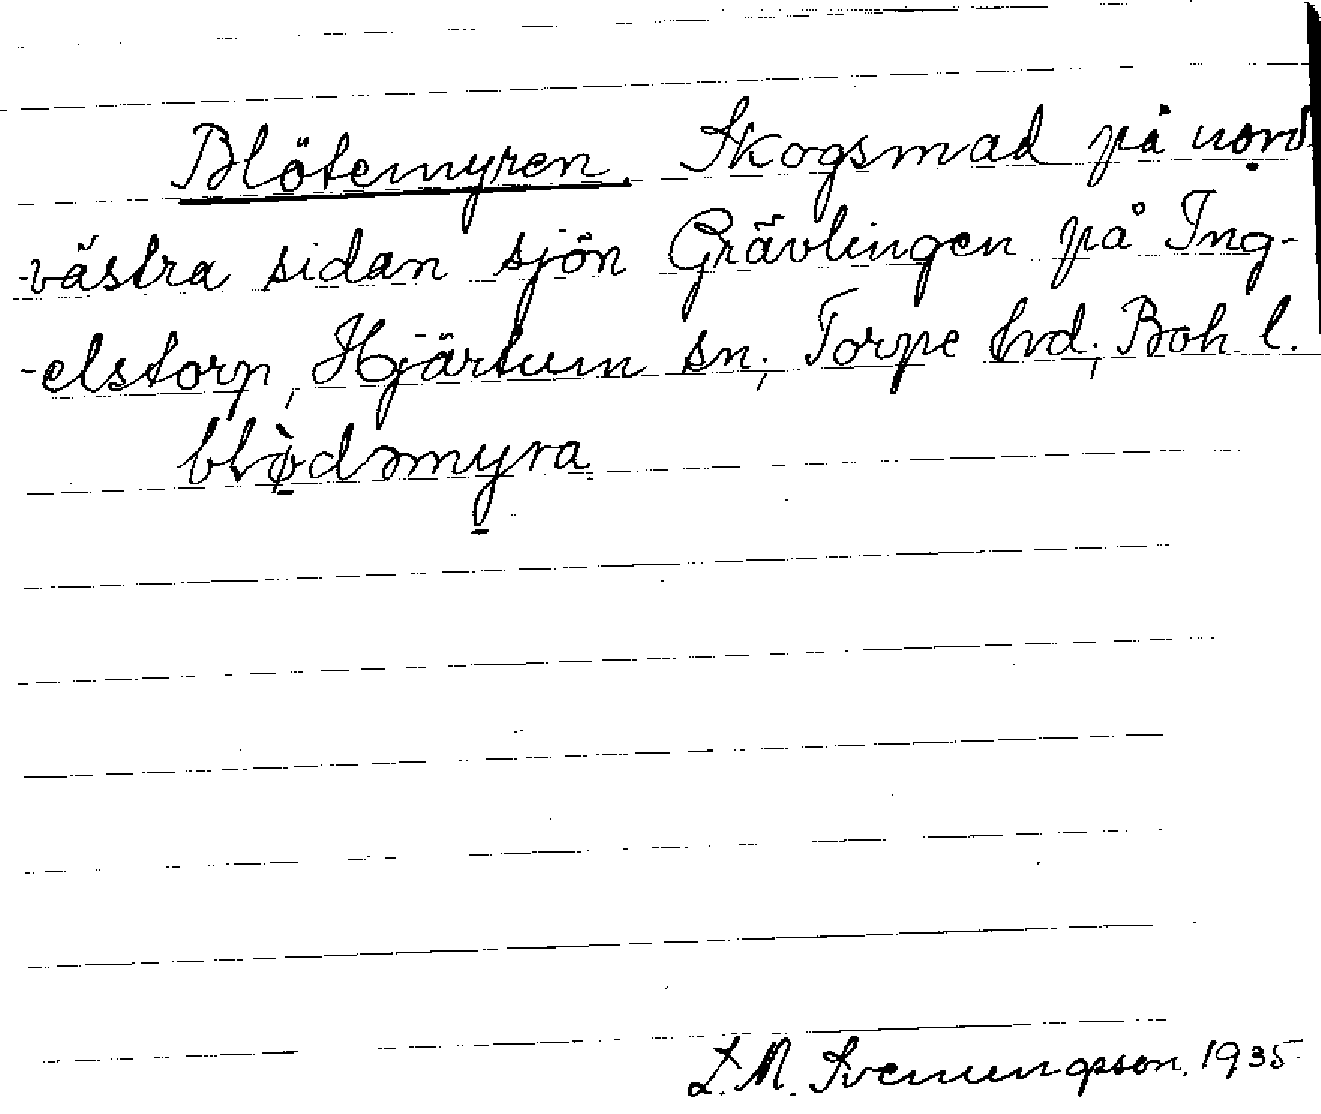 Blötemyren. Skogsmad på nord
-västra sidan sjön Grävlingen på Ing-
-elstorp, Hjärtum sn; Torpe hrd; Boh l.
blø̀dəmyra
L. M. Svenungsson. 1935